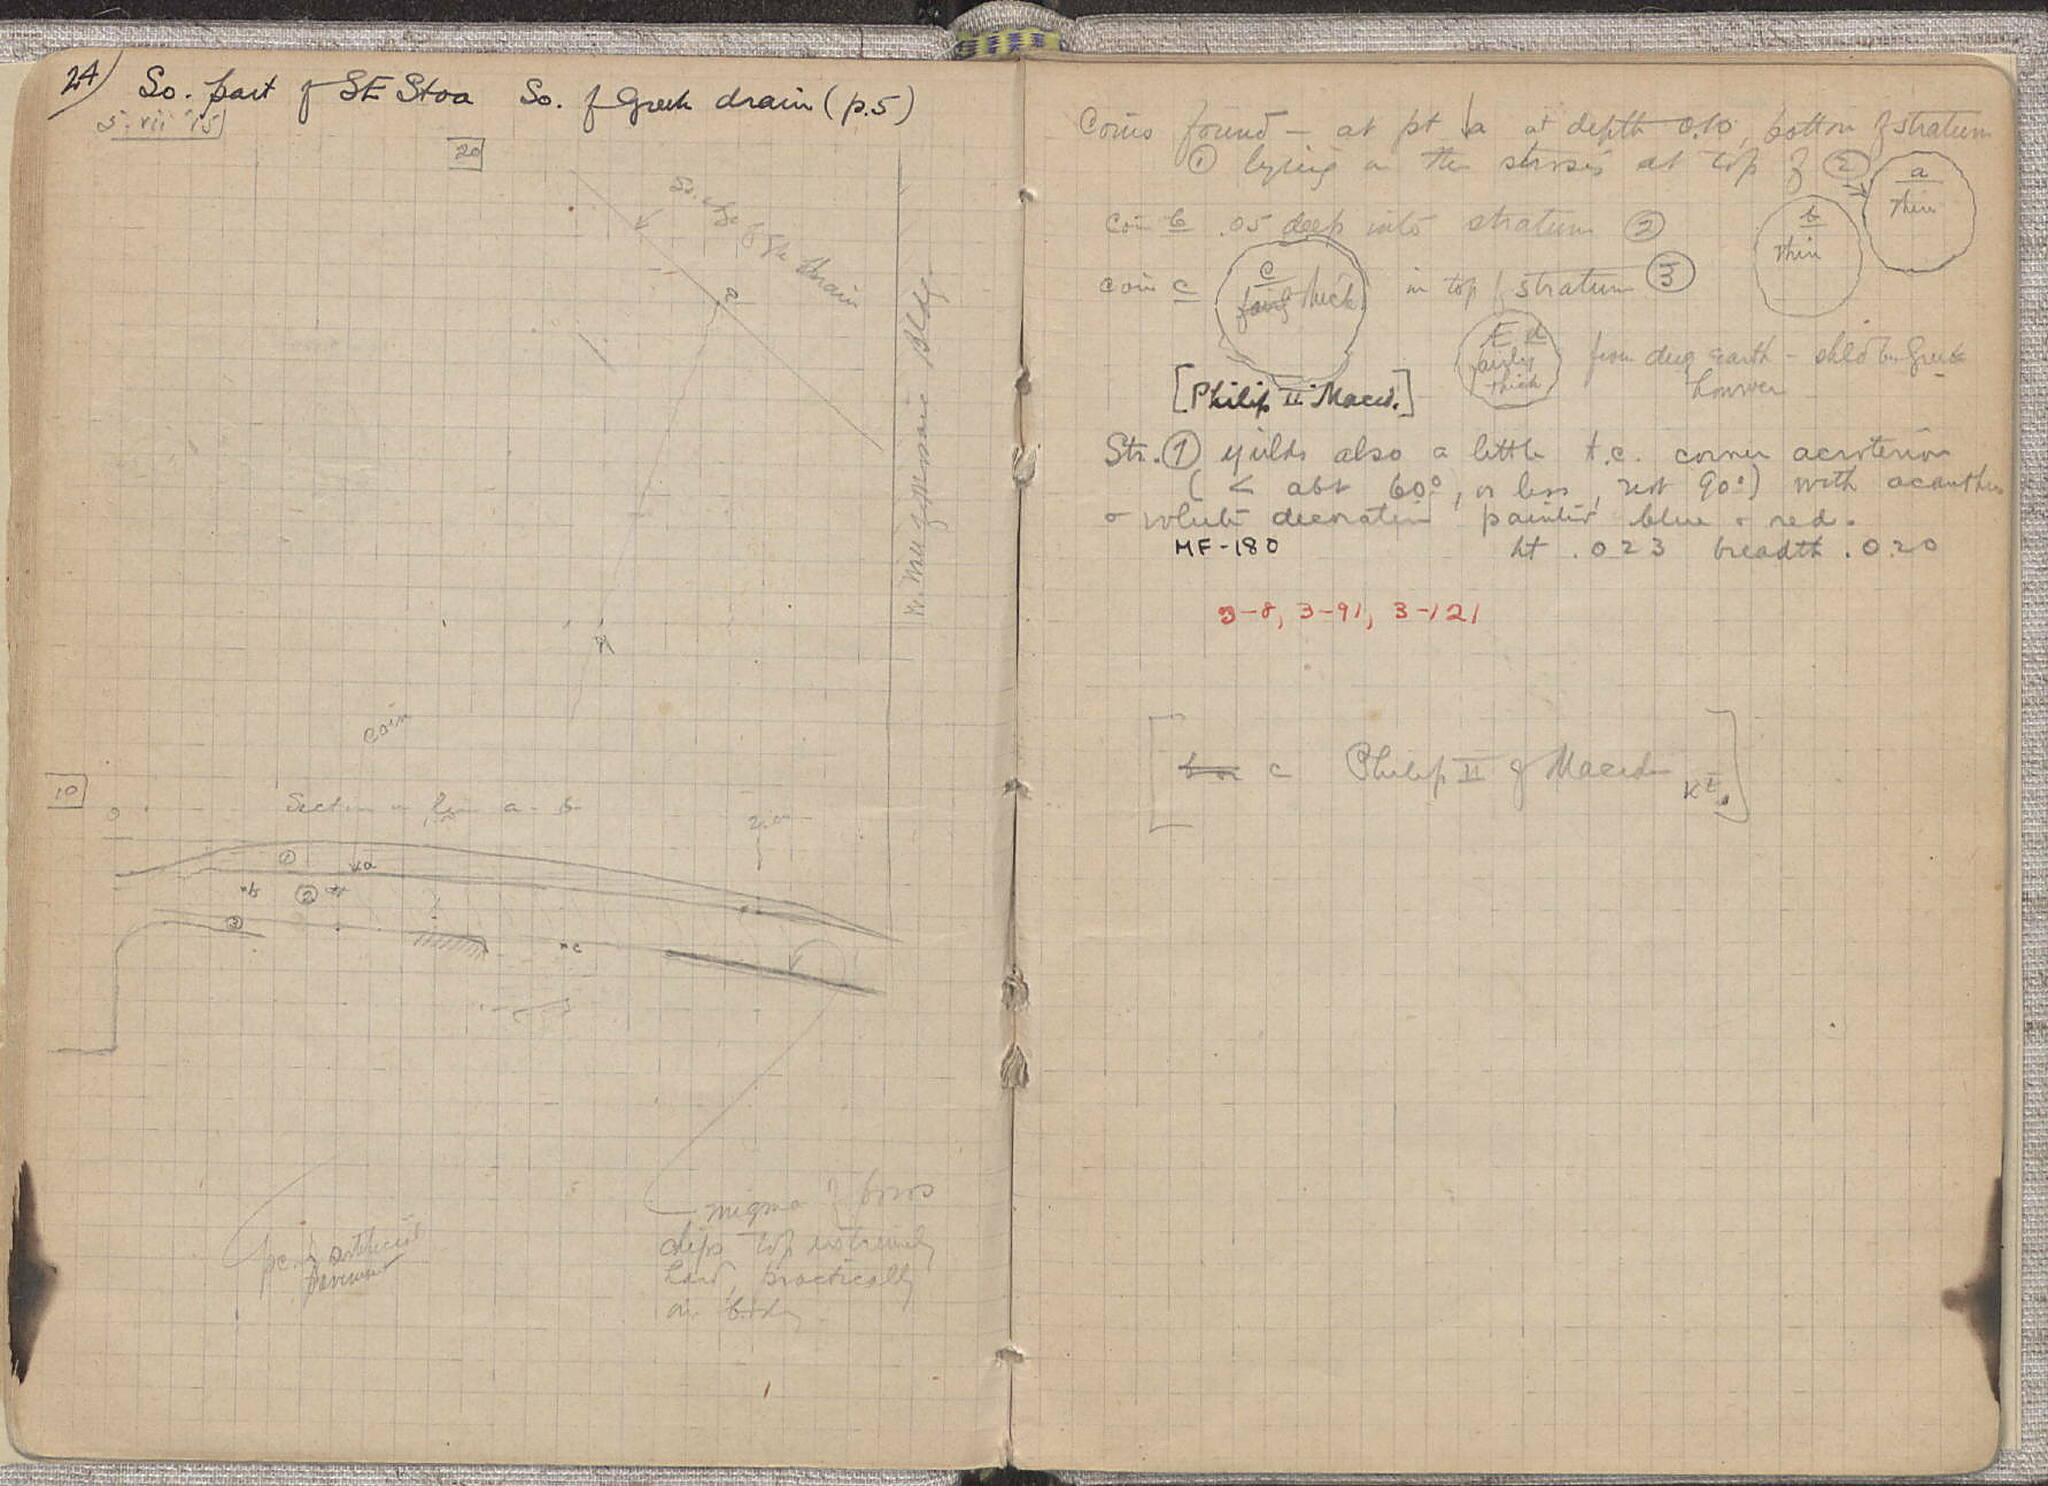 24)
So. part of SE Stoa So. of Greek drain (p.5)
5. vii '15
20
So. edge of Gk drain
B
W. Wall of Museum Bldg.
A
coin
10
0
Section on line a - b
2.00
①
xa
xb
②
③
xc
pc. of artificial
pavement
migma of poros
chips top extremely
hard, practically
Coins found — at pt a at depth 0.10, bottom of stratum
① lying on the stones at top of ②
a
thin
coin b .05 deep into stratum ②
b
thin
coin c
c
thick
in top of stratum ③
d
fairly
thick
from deep earth — shld be Greek
however
[Philip II Maced.]
Str. ① yields also a little t.c. corner acroterion
(< abt 60°, or less, not 90°) with acanthus
+ volute decoration painted blue + red.
MF-180
ht .023 breadth .020
3-8, 3-91, 3-121
[c Philip II of Macedon K.]